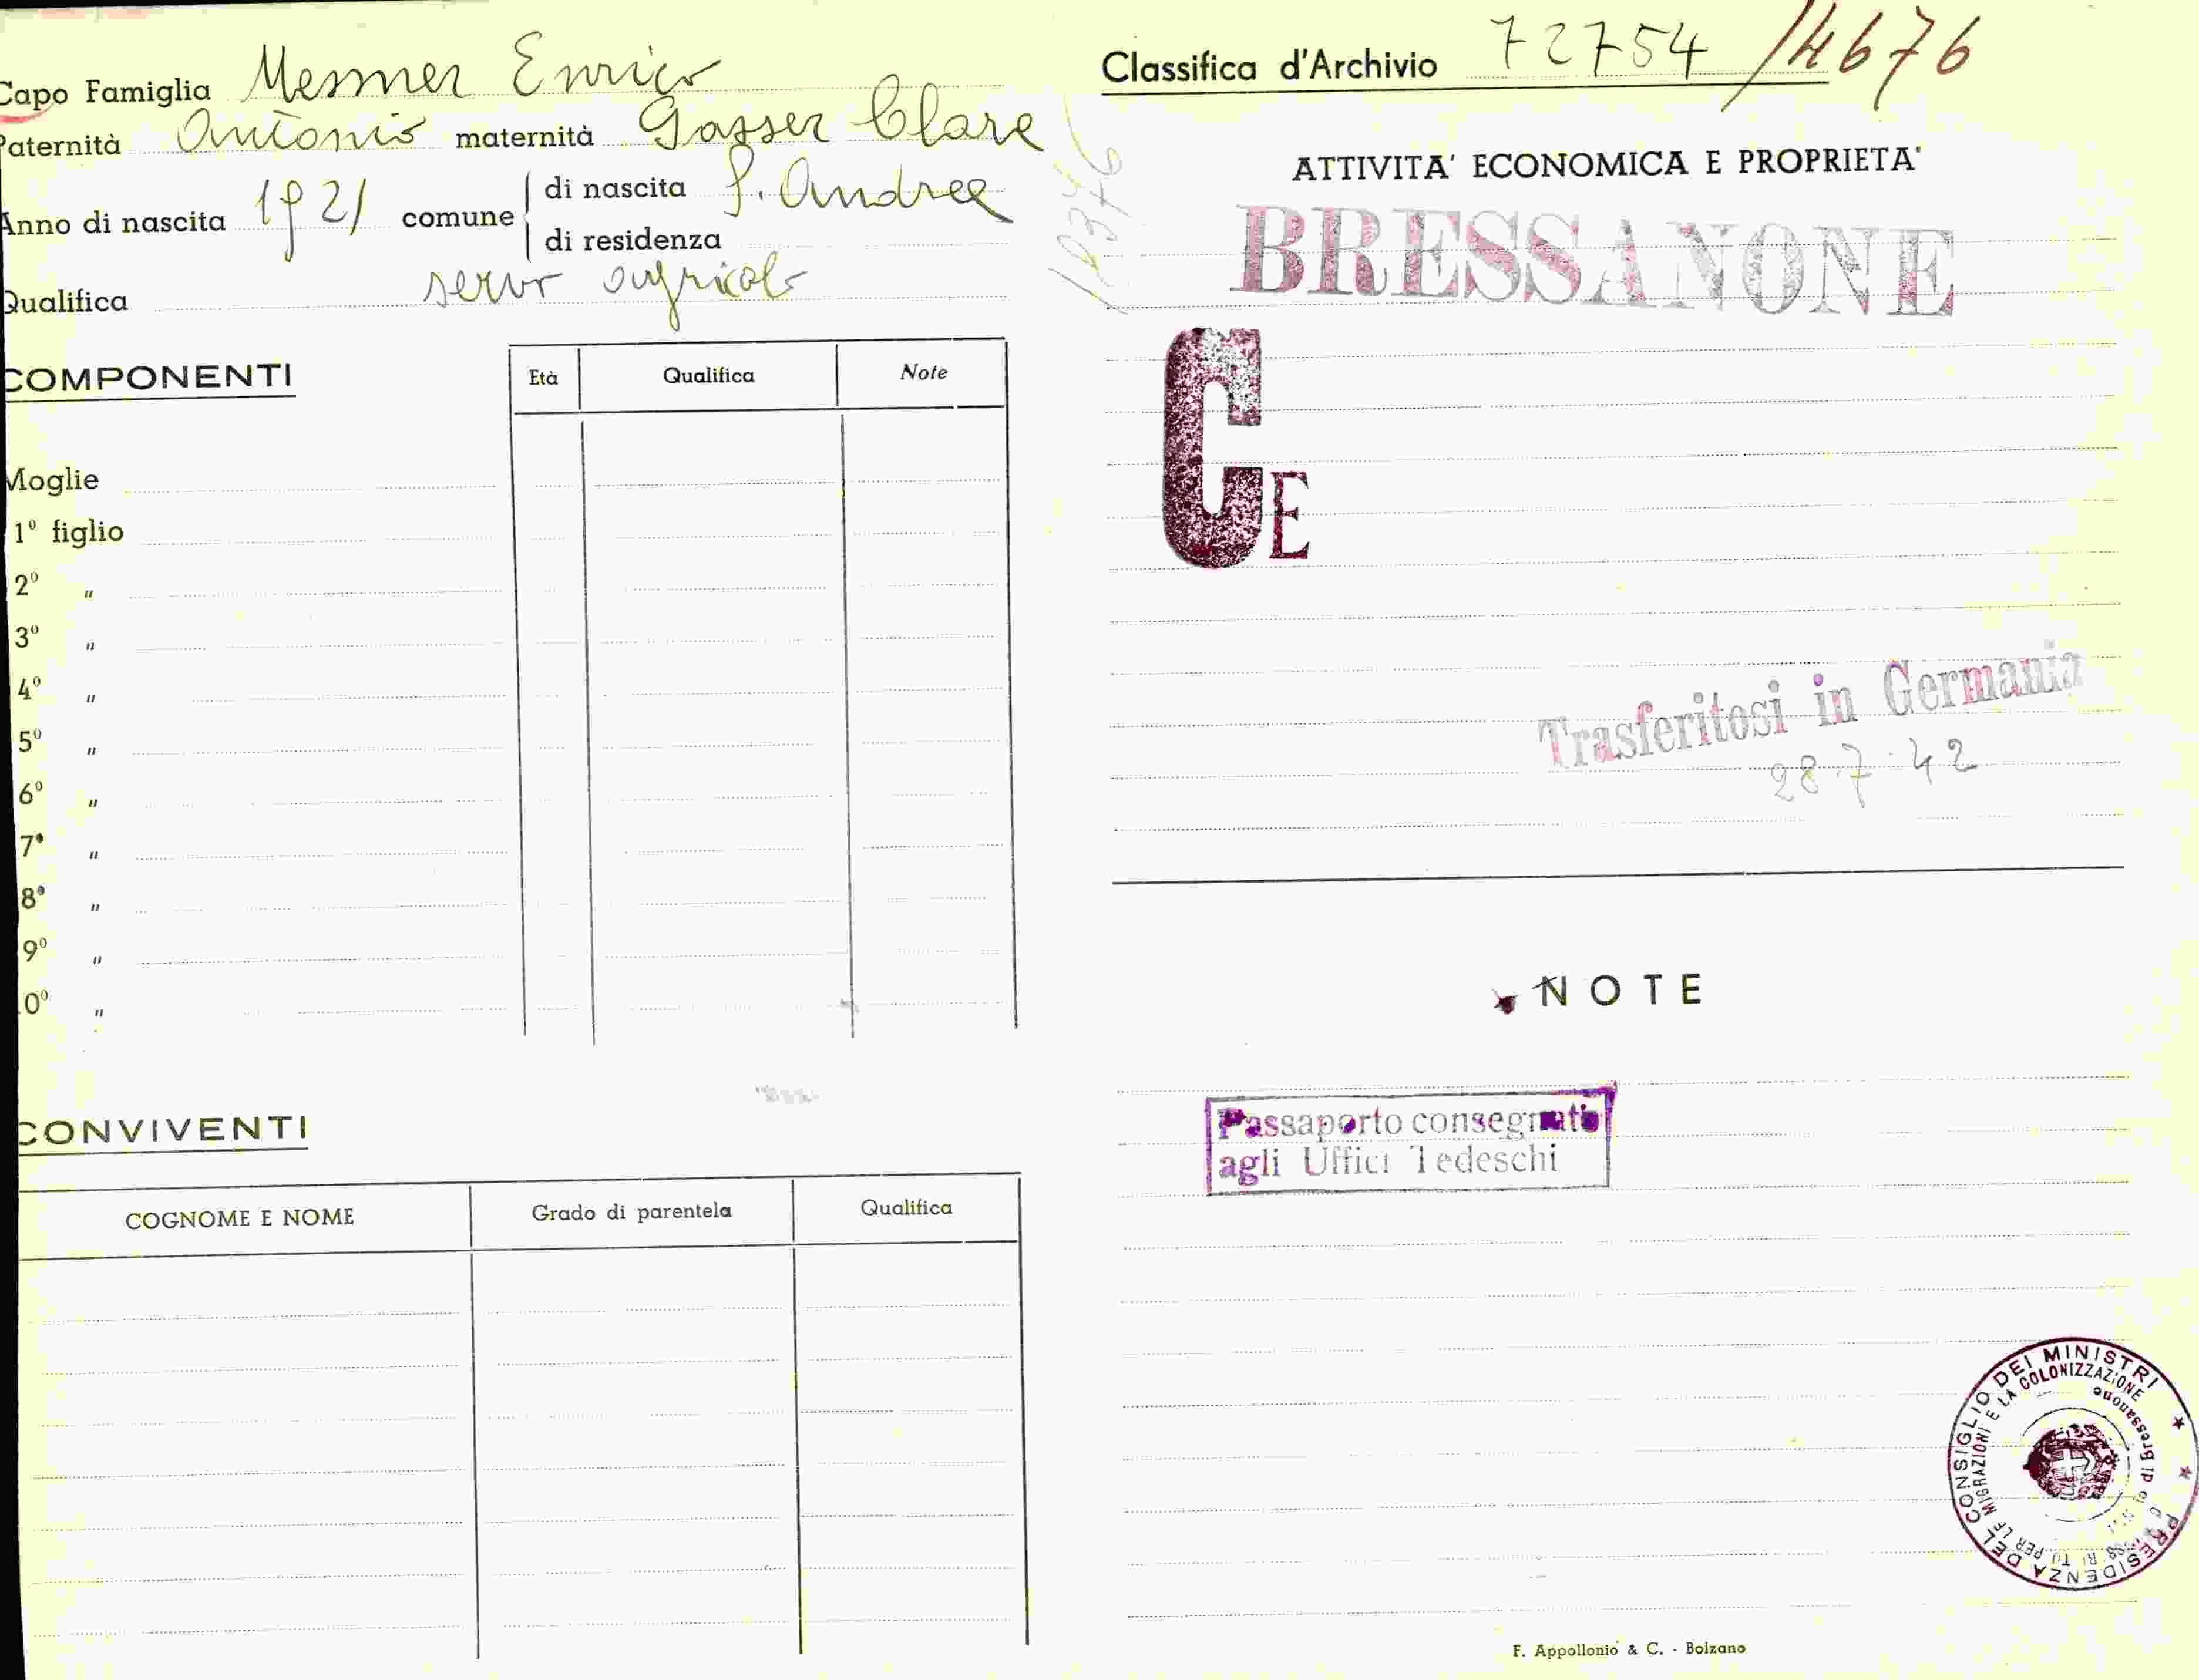 Capo Famiglia Messner Enrico
Paternità Antonio maternità Gasser Clara
Anno di nascita 1921 comune di nascita S. Andrea
di residenza
Qualifica servo agricolo
COMPONENTI
Età Qualifica Note
Moglie
1º figlio
2º "
3º "
4º "
5º "
6º "
7º "
8º "
9º "
0º "
CONVIVENTI
COGNOME E NOME Grado di parentela Qualifica
Classifica d'Archivio 72754 / 4676
ATTIVITA' ECONOMICA E PROPRIETA'
BRESSANONE
CE
Trasferitosi in Germania
28-7-42
NOTE
Passaporto consegnato
agli Uffici Tedeschi
PRESIDENZA DEL CONSIGLIO DEI MINISTRI
PER LE MIGRAZIONI E LA COLONIZZAZIONE
di Bressanone
F. Appollonio & C. - Bolzano